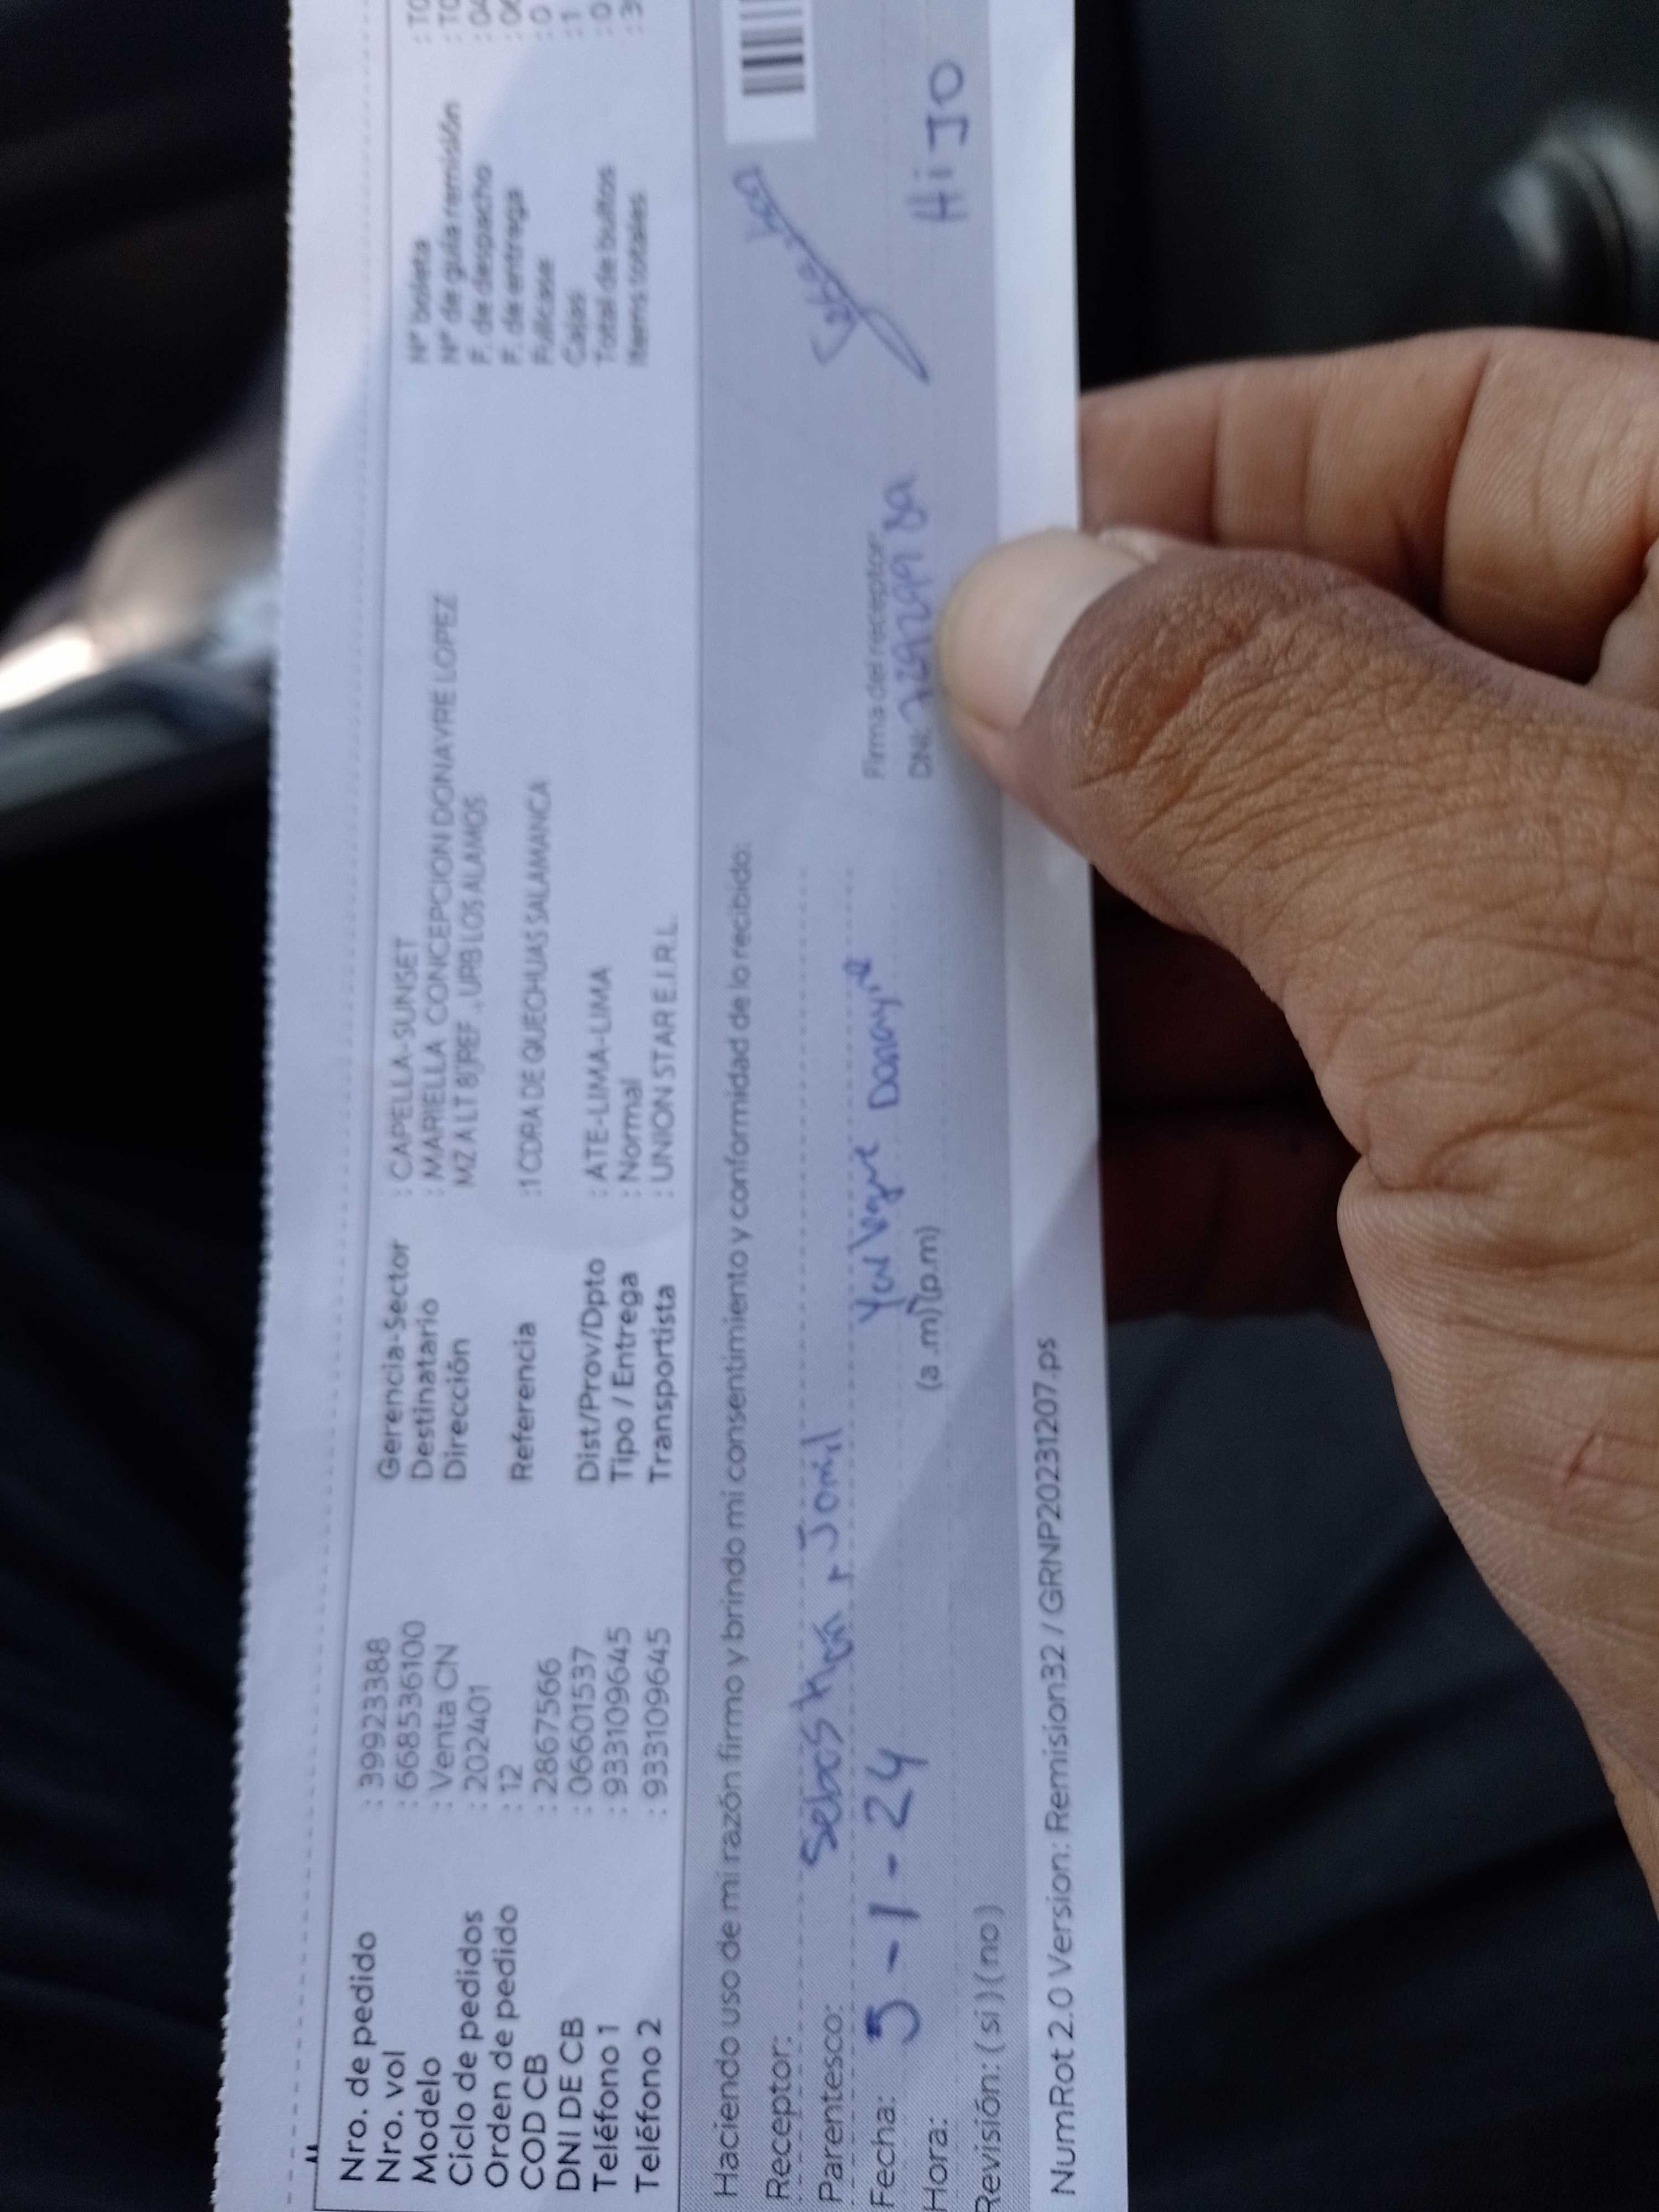 Nro. de pedido : 39923388
Nro. vol : 6685536100
Modelo : Venta CN
Ciclo de pedidos : 202401
Orden de pedido : 12
COD CB : 2867566
DNI DE CB : 06601537
Teléfono 1 : 933109645
Teléfono 2 : 933109645
Gerencia-Sector : CAPELLA-SUNSET
Destinatario : MARIELLA CONCEPCION DONAYRE LOPEZ
Dirección MZ A LT 8JREF . URB LOS ALAMOS
Referencia :1 CDRA DE QUECHUAS SALAMANCA
Dist/Prov/Dpto : ATE-LIMA-LIMA
Tipo / Entrega : Normal
Transportista : UNION STAR E.I.R.L.
N° boleta : TO
N° de guía remisión : TO
F. de despacho : 04
F. de entrega : 06
Fullcase : 0
Cajas : 1
Total de bultos : 0
Items totales : 3
Haciendo uso de mi razón firmo y brindo mi consentimiento y conformidad de lo recibido:
Receptor: Sebasthan Jomil
Parentesco: Donayre
Fecha: 5-1-24
Hora: (a .m) (p.m)
Revisión: ( si ) ( no )
Firma del receptor
DNI:
HiJO
NumRot 2.0 Version: Remision32 / GRNP20231207.ps